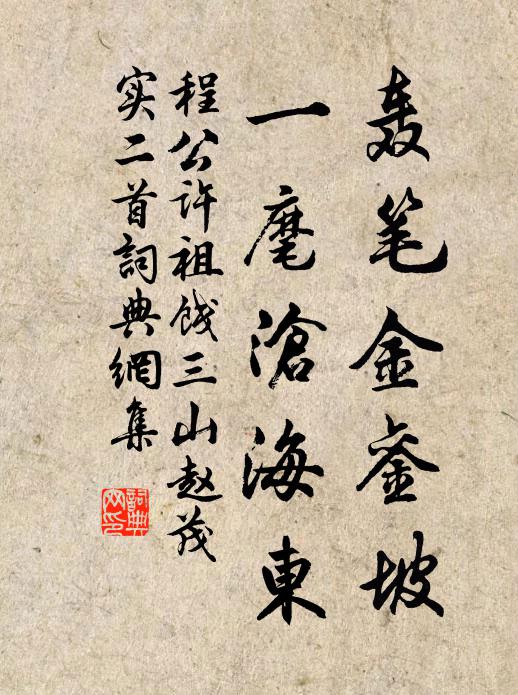 轰笔金銮坡
一麾滄海東
程公许祖饯三山赵茂
实二首詞典網集
詞典
网印